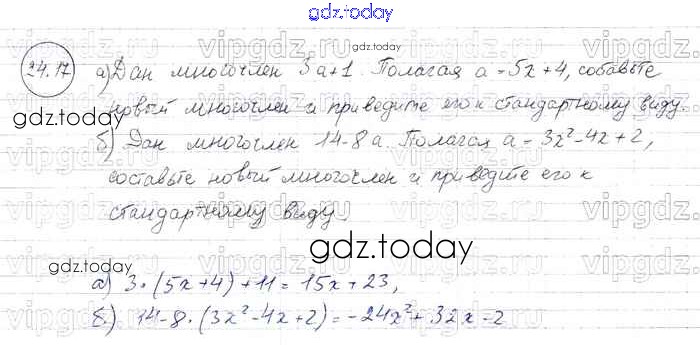 gdz.today
24.17
а) Дан многочлен 3а+1. Полагая а = 5х+4, собавьте
новый многочлен и приведите его к стандартному виду.
gdz.today
б) Дан многочлен 14-8а. Полагая а = 3х²-4х+2,
составьте новый многочлен и приведите его к
стандартному виду.
gdz.today
gdz.today
а) 3·(5х+4)+11 = 15х+23,
б) 14-8·(3х²-4х+2) = -24х²+32х-2